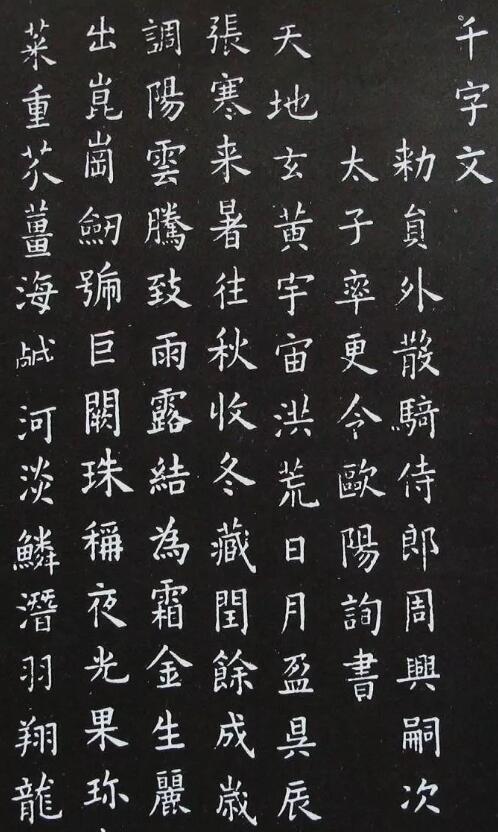 千字文
勑員外散騎侍郎周興嗣次
太子率更令歐陽詢書
天地玄黃宇宙洪荒日月盈昃辰
張寒来暑往秋收冬藏閏餘成歲
調陽雲騰致雨露結為霜金生麗
出崑崗劒號巨闕珠稱夜光果珎
菜重芥薑海鹹河淡鱗潛羽翔龍